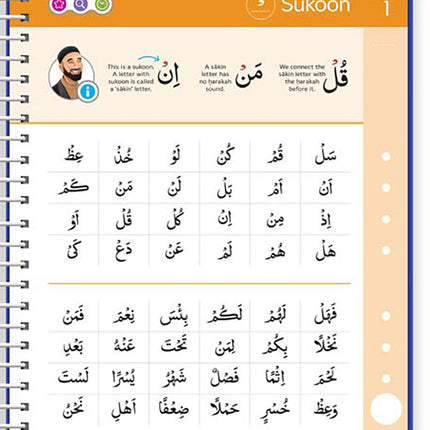 Sukoon
1
This is a sukoon. A letter with sukoon is called a 'sākin' letter.
اِنْ
A sākin letter has no ḥarakah sound.
مَنْ
We connect the sākin letter with the ḥarakah before it.
قُلْ
سَلْ قُمْ كُنْ لَوْ خُذْ عِظْ
اَنْ اَمْ بَلْ لَنْ مَنْ كَمْ
اِذْ مِنْ اِنْ كُلْ قُلْ اَوْ
هَلْ هُمْ لَمْ عَنْ دَعْ كَىْ
فَهَلْ لَهُمْ لَكُمْ بِئْسَ نِعْمَ فَمَنْ
نَخْلًا بِكُمْ لِمَنْ تَحْتَ عَنْهُ بَعْدِ
لَحْمَ اِثْمًا فَصْلٌ شَهْرُ يُسْرًا لَسْتَ
وَعِظْ خُسْرٍ حَمْلًا ضِعْفًا اَهْلِ نَحْنُ